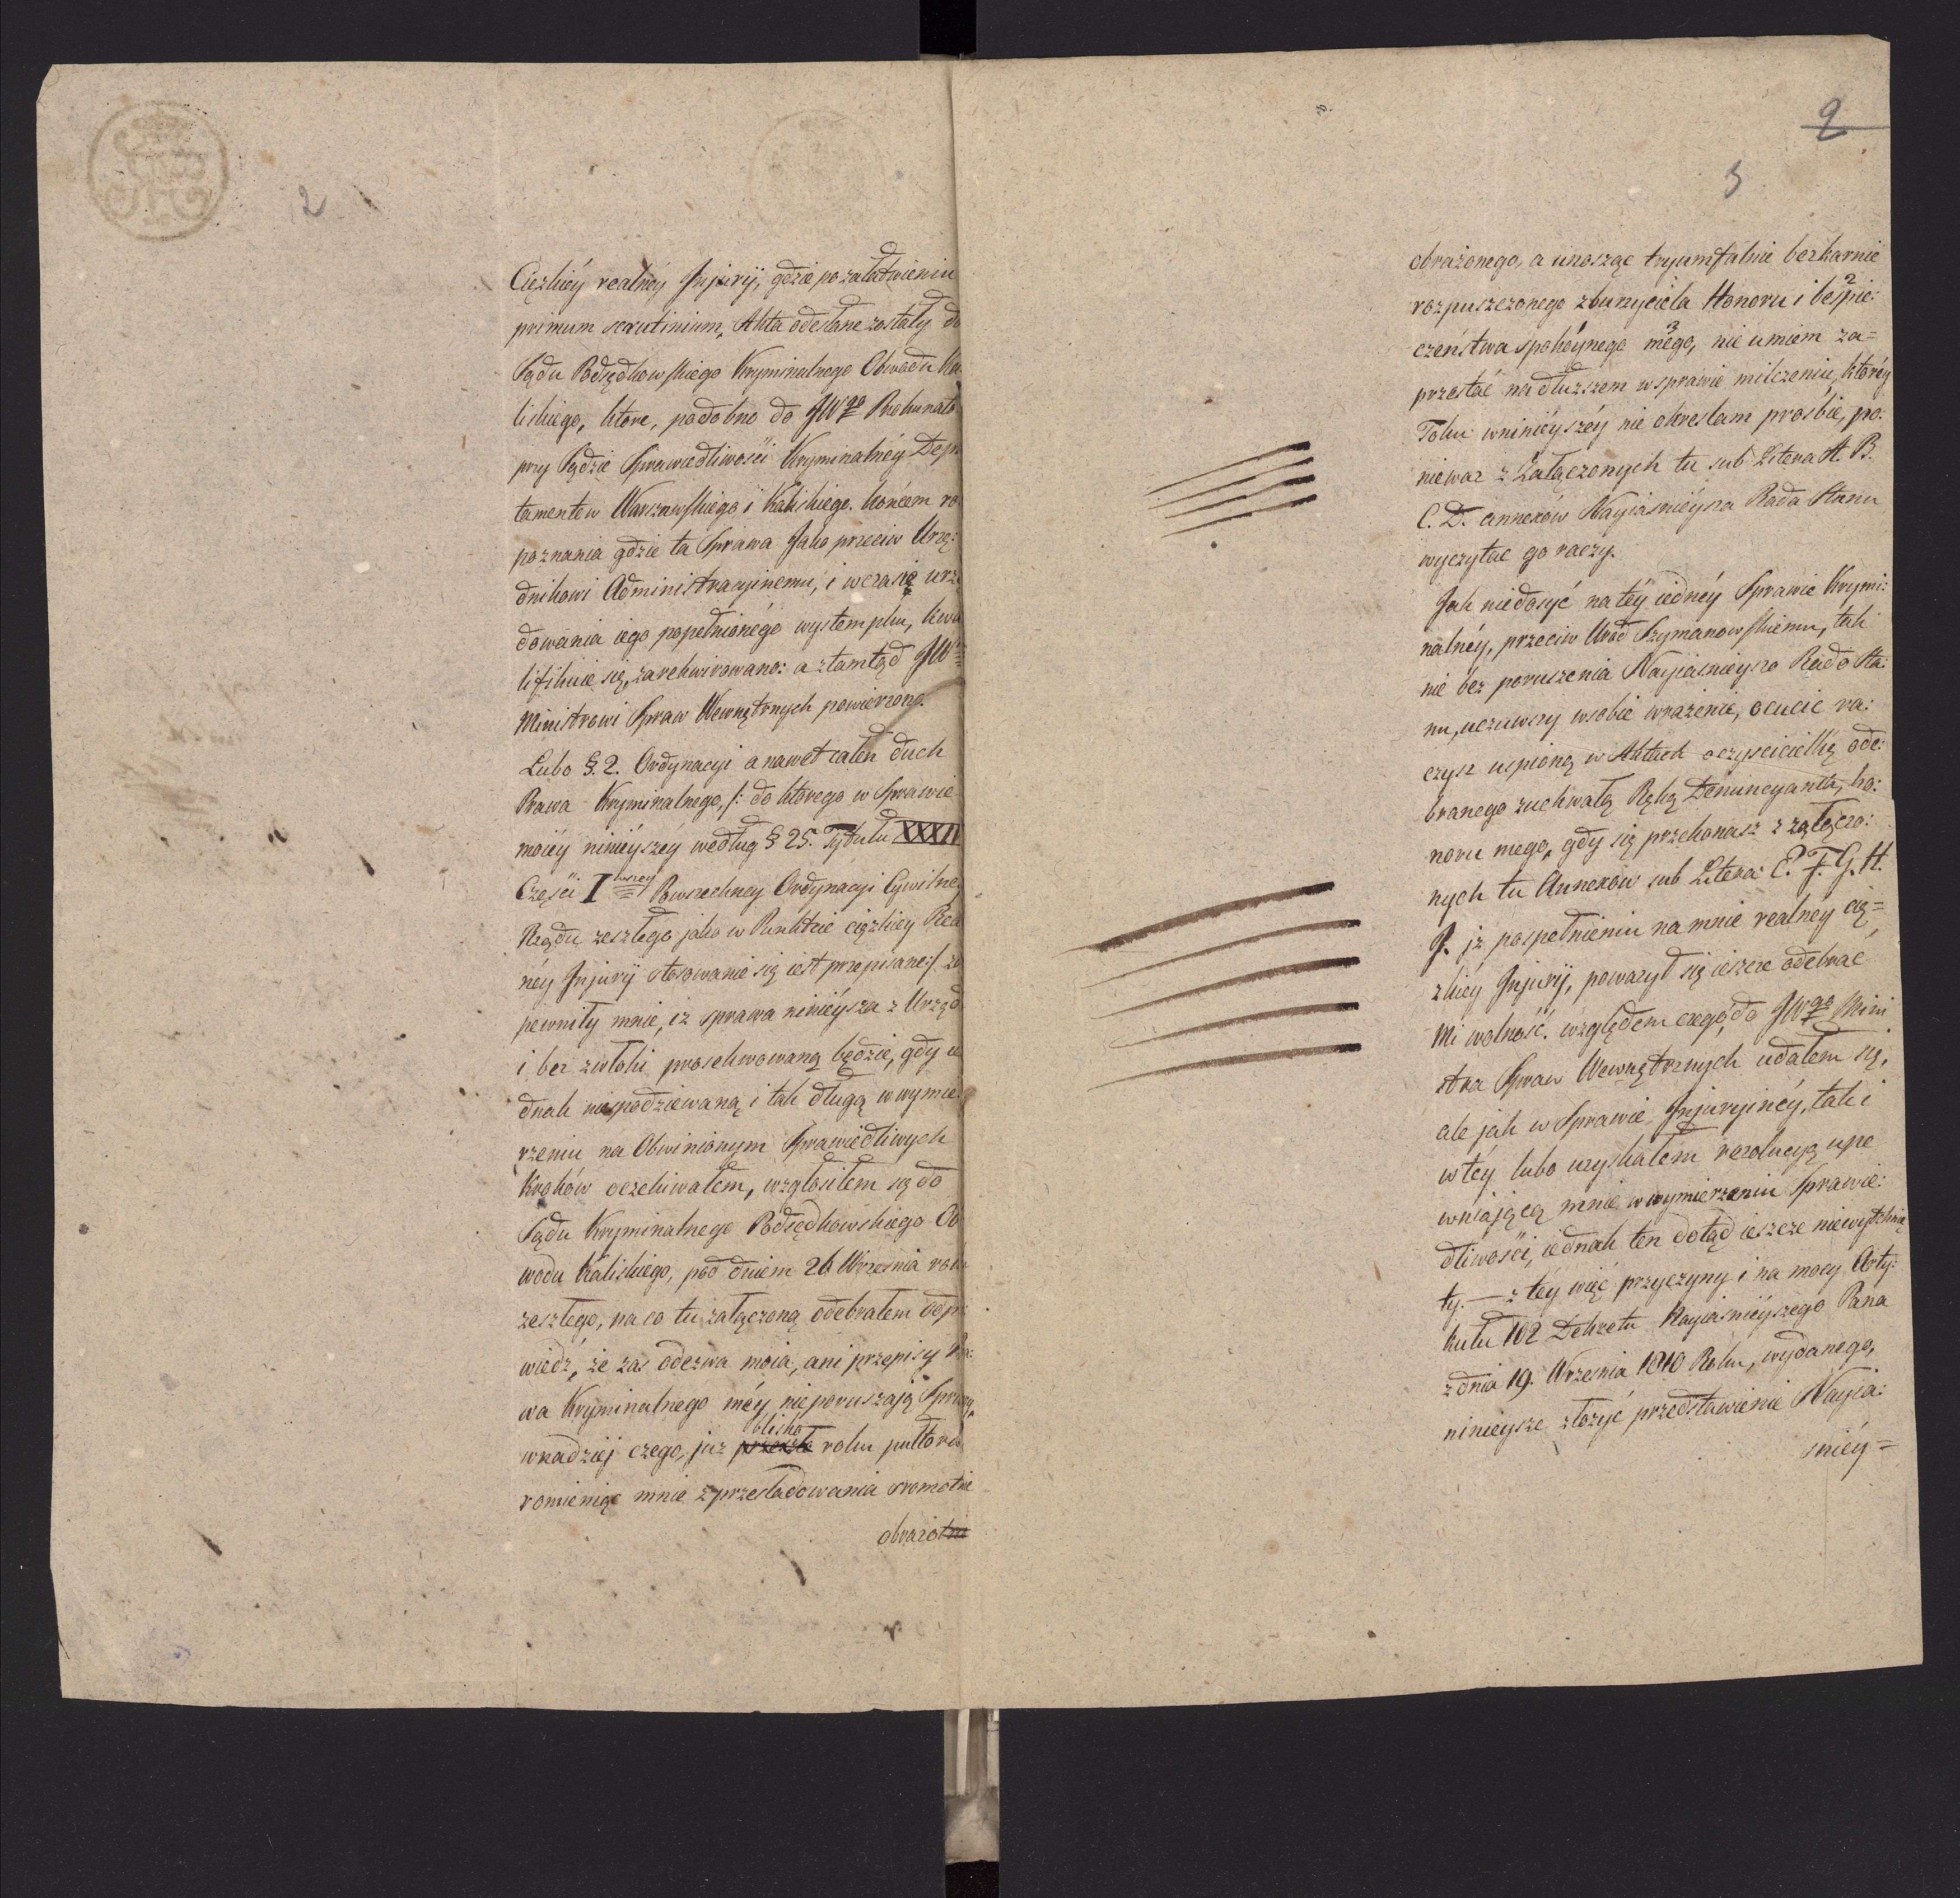 2
Cięzkiéy realnéy Injurij, gdzie po załatwieniu
primum scrutinium, Akta odesłane zostały do
Sądu Podsędkowskiego Kryminalnego Obwodu Ka
liskiego, ktore, podobno do JWgo Prokurato
przy Sądzie Sprawiedliwości Kryminalnéy Depar
tamentow Warszawskiego i Kaliskiego. końcem ro
poznania gdzie ta Sprawa Jako przeciw Urzę:
dnikowi Administracyinemu, i w czasie urzę
dowania iego popełnionégo wystempku, kwa
lifikuie się, zarekwirowano: a ztamtąd JW
Ministrowi Spraw Wewnętrnych powierzono.
Lubo §. 2. Ordynacyi a nawet całen duch
Prawa Kryminalnego, /: do ktorego w Sprawie
moiéy ninieyszéy według § 25. Tytułu XXXIV
Częsci I wszey Powszechney Ordynacyi Cywilney
Rządu zeszłego jako w Punktcie ciązkiey Real
néy Injurij stosowanie się iest przepisane :/ za
pewniły mnie, iz sprawa ninieysza z Urzęd
i bez zwłoki prosekwowaną będzie, gdy ie
dnak niespodziewaną i tak długą w wymie:
rzeniu na Obwinionym Sprawiedliwych
Krokow oczekiwałem, wzgłosiłem się do
Sądu Kryminalnego Podsędkowskiego Ob
wodu Kaliskiego, pod dniem 26 Września roku
zeszłego, na co tu załączoną odebrałem odpo
wiedź, że zas odezwa moia, ani przepisy Pra:
wa Kryminalnego méy nieporuszaią Sprawy,
wnadziéj czego, juz przeszło blisko roku pułtora
romieniąc mnie z prześladowania sromotnie
obrażo
2
3
obrażonego, a unosząc tryumfalnie bezkarnie
rozpuszczonego zburzyciela Honoru i beśpie:
czeństwa spokóynego mégo, nie umiem za=
przestać na dłuższem w sprawie milczeniu, któréy
Toku wniniéyszéy nie okreslam prośbie, po:
niewaz z Załączonych tu sub Litera A. B.
C. D. annexów Nayiasniéysza Rada Stanu
wyczytac go raczy.
Jak niedosyć na téy iednéy Sprawie Krymi:
nalnéy, przeciw Urod Szymanowskiemu, tak
nie bez poruszenia Nayiasnieysza Rado Sta:
nu, uczuwszy w sobie wrażenie, ocucic ra:
czysz uspioną w Aktach oczyscicielkę ode:
branego zuchwałą Ręką Denuncyanta, ho:
noru mego, gdy się przekonasz z załączo:
nych tu Annexow sub Litera: E. F. G. H.
J. jż pospełnieniu na mnie realnéy cię=
zkiey Injurij, poważył się ieszcze odebrać
Mi wolność. względem czego, do JWgo Mini
stra Spraw Wewnętrznych udałem się,
ale jak w Sprawie Injuryinéy, tak i
w téy lubo uzyskałem rezolucyą upe
wniaiącą mnie w wymierzaniu Sprawie:
dliwości, iednak ten dotąd ieszcze niewytchnię
ty. — z téy więc przyczyny i na mocy Arty:
kułu 102 Dekretu Nayiasnieyszego Pana
z dnia 19. Września 1810 Roku, wydanego,
ninieysze złożyć przedstawienie Nayia:
snięy=